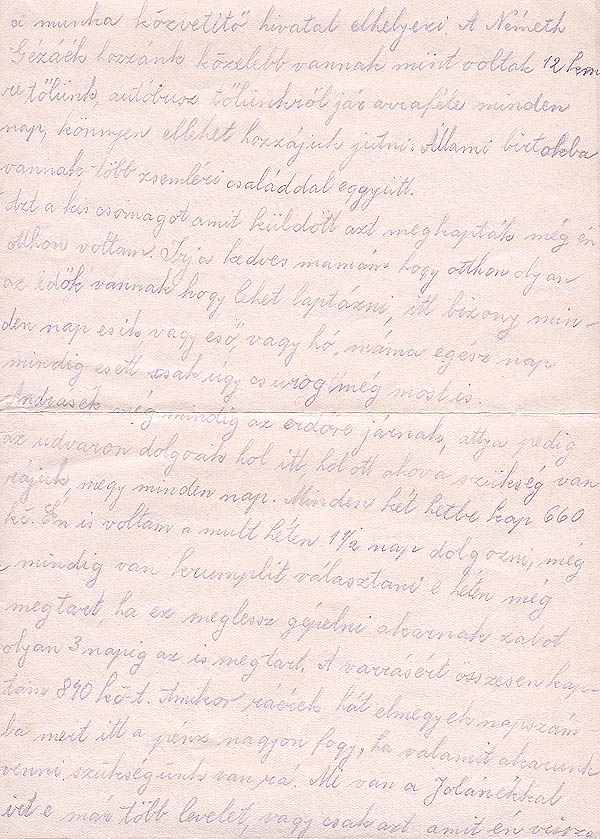 ői munka közvetítő hivatal elhelyezi. A Németh
Gézáék hozzánk közelebb vannak mint voltak 12 km
re tőlünk, autóbusz tőlünkről jár arraféle minden
nap, könnyen ellehet hozzájuk jutni. Állami birtokba
vannak több zsemléri családdal eggyütt.
Azt a kis csomagot amit küldött azt megkapták még én
otthon voltam. Irja kedves mamám hogy otthon olyan
az idők vannak hogy lehet laptázni, itt bizony min-
den nap esik, vagy eső, vagy hó, máma egész nap
mindig esett csak ugy csurog még most is.
Andrásék még mindig az erdőre járnak, attya pedig
az udvaron dolgozik hol itt, hol ott ahova szükség van
rájuk, megy minden nap. Minden két hetbe kap 660
kč. Én is voltam a mult héten 1 1/2 nap dolgozni, még
mindig van krumplit választani e hétén még
megtart, ha ez meglessz gépelni akarnak zabot
olyan 3 napig az is megtart. A varrásért összesen kap-
tam 890 kč-t. Amikor ráérek hát elmegyek napszám
ba mert itt a pénz nagyon fogy, ha valamit akarunk
venni szükségünk van rá. Mi van a Jolánékkal
irt e már több levelet, vagy csak azt amit én vissza